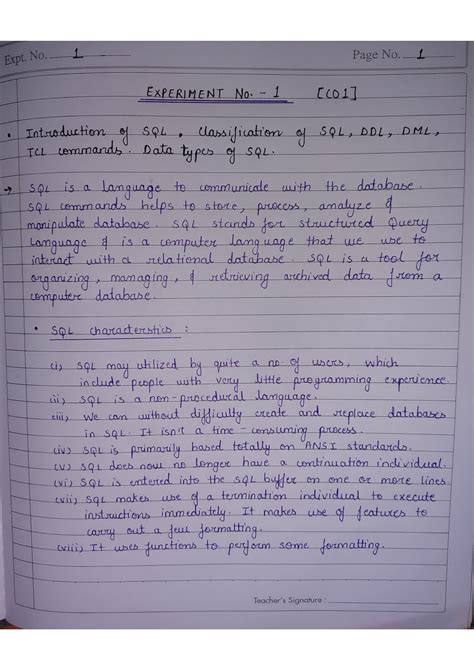 Expt. No. 1 Page No. 1
EXPERIMENT No. - 1 [CO1]
• Introduction of SQL, Classification of SQL, DDL, DML,
TCL commands. Data types of SQL.
→ SQL is a language to communicate with the database.
SQL commands helps to store, process, analyze &
manipulate database. SQL stands for structured Query
Language & is a computer language that we use to
interact with a relational database. SQL is a tool for
organizing, managing, & retrieving archived data from a
computer database.
• SQL characterstics :
(i) SQL may utilized by quite a no. of users, which
include people with very little programming experience.
(ii) SQL is a non-procedural language.
(iii) We can without difficulty create and replace databases
in SQL. It isn't a time-consuming process.
(iv) SQL is primarily based totally on ANSI standards.
(v) SQL does now no longer have a continuation individual.
(vi) SQL is entered into the SQL buffer on one or more lines.
(vii) SQL makes use of a termination individual to execute
instructions immediately. It makes use of features to
carry out a few formatting.
(viii) It uses functions to perform some formatting.
Teacher's Signature :